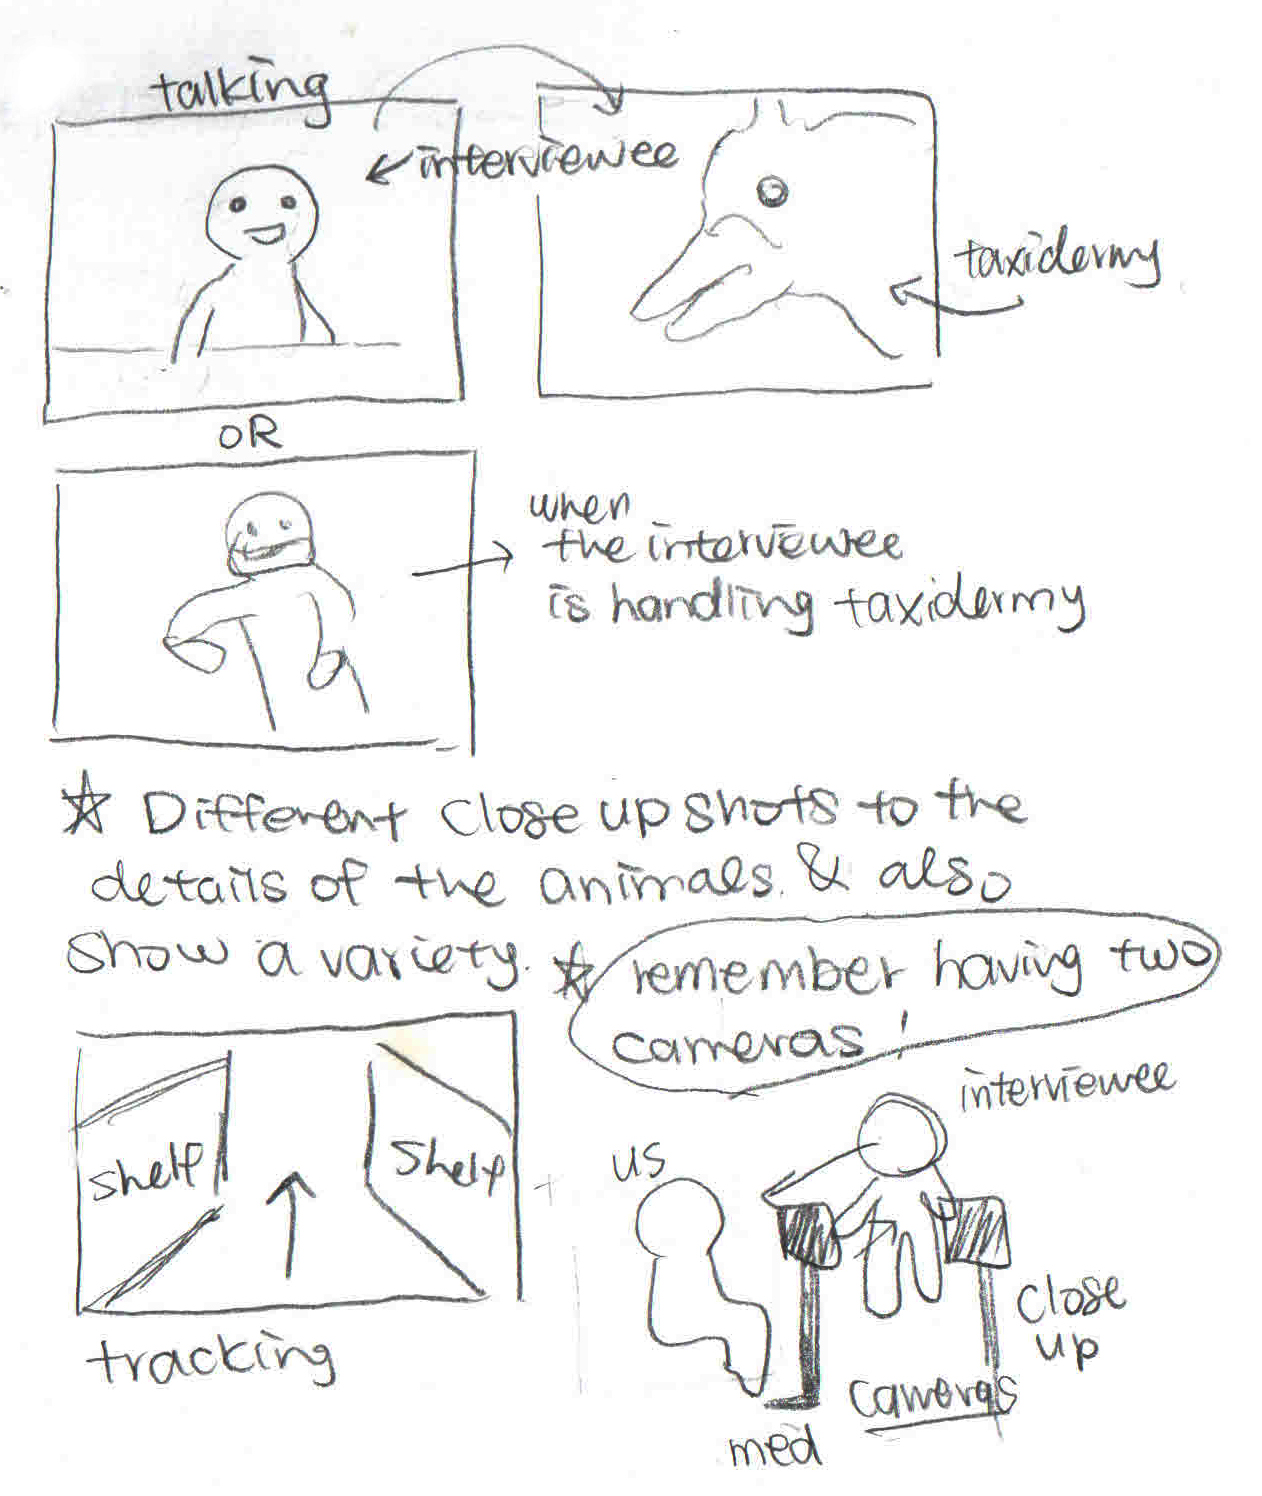 talking
interviewee
taxidermy
OR
when
the interviewee
is handling taxidermy
☆ Different close up shots to the
details of the animals. & also
show a variety. ☆ remember having two
cameras!
shelf
shelf
tracking
interviewee
us
close
up
cameras
med